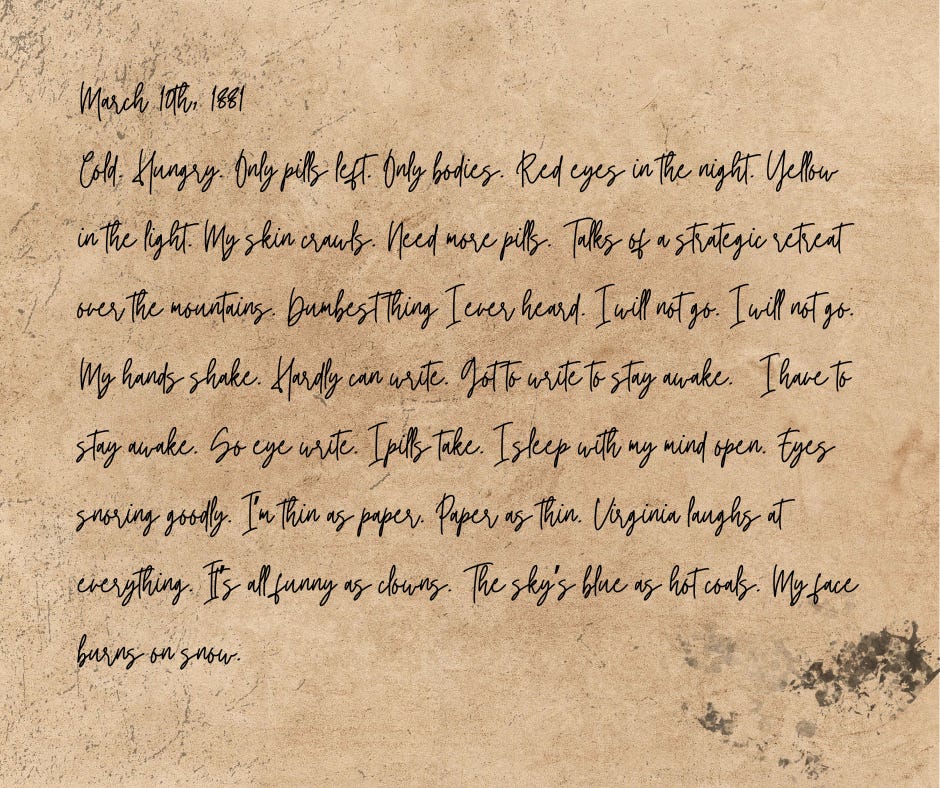 March 10th, 1881
Cold. Hungry. Only pills left. Only bodies. Red eyes in the night. Yellow
in the light. My skin crawls. Need more pills. Talks of a strategic retreat
over the mountains. Dumbest thing I ever heard. I will not go. I will not go.
My hands shake. Hardly can write. Got to write to stay awake. I have to
stay awake. So eye write. I pills take. I sleep with my mind open. Eyes
snoring goodly. I'm thin as paper. Paper as thin. Virginia laughs at
everything. It's all funny as clowns. The sky's blue as hot coals. My face
burns on snow.